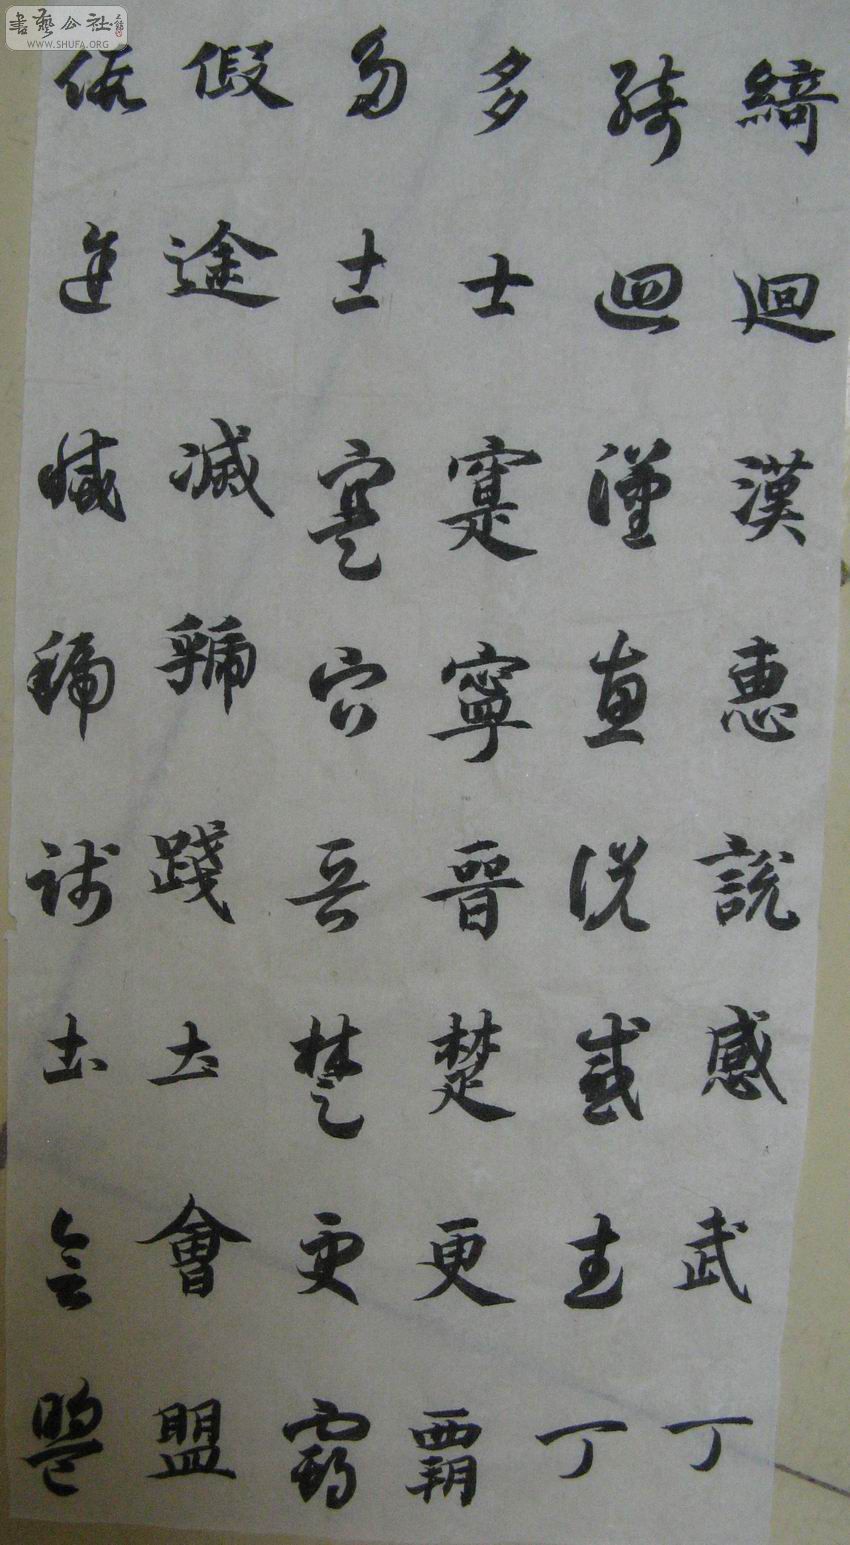 書藝公社
WWW.SHUFA.ORG
綺迴漢惠說感武丁
綺迴漢惠說感武丁
多士寔寧晉楚更覇
多士寔寧晉楚更霸
假途滅虢踐土會盟
假途滅虢踐土會盟